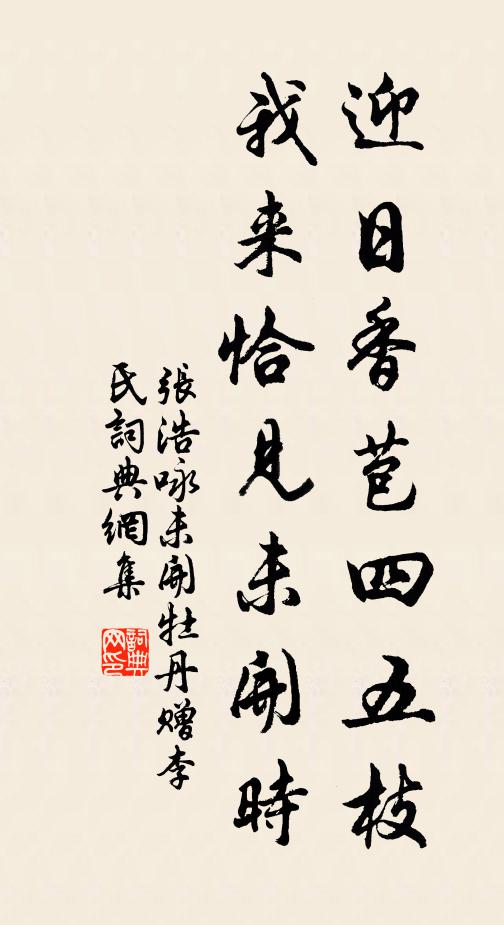 迎日香苞四五枝
我来恰見未開時
張浩咏未開牡丹贈李
氏詞典網集
詞典
网印